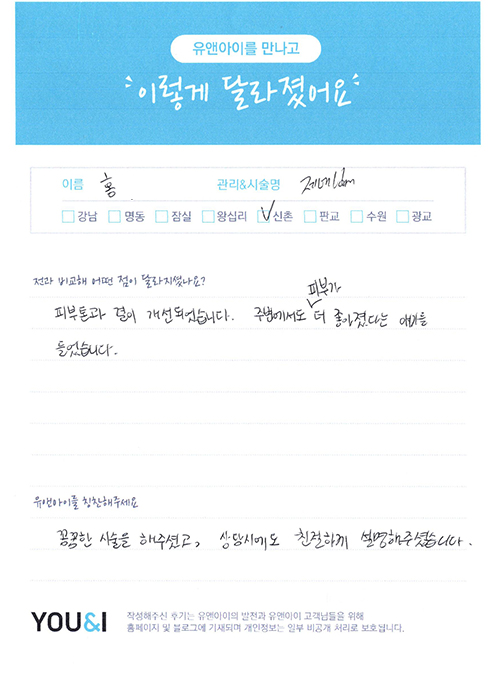 유앤아이를 만나고
이렇게 달라졌어요
이름 홍 관리&시술명 제네
강남 명동 잠실 왕십리 신촌 판교 수원 광교
전과 비교해 어떤 점이 달라지셨나요?
피부가
피부톤과 결이 개선되었습니다. 주변에서도 더 좋아졌다는 얘기를
들었습니다.
유앤아이를 칭찬해주세요
꼼꼼한 시술을 해주셨고, 상담시에도 친절하게 설명해주셨습니다.
YOU&I
작성해주신 후기는 유앤아이의 발전과 유앤아이 고객님들을 위해
홈페이지 및 블로그에 기재되며 개인정보는 일부 비공개 처리로 보호됩니다.